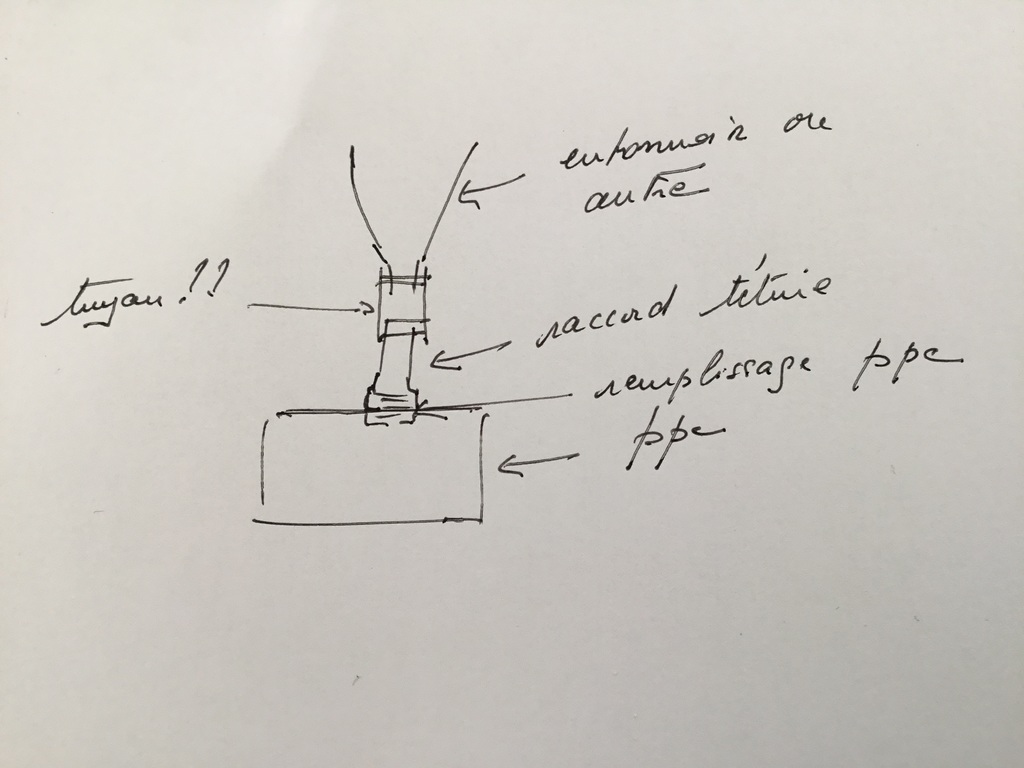 entonnoir ou
autre
tuyau !!
raccord tétine
remplissage ppe
ppe